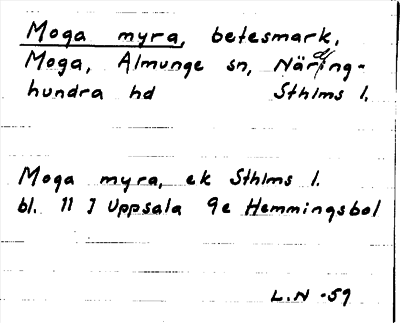 Moga myra, betesmark,
Moga, Almunge sn, Närding-
hundra hd Sthlms l.
Moga myra, ek Sthlms l.
bl. 11 J Uppsala 9e Hemmingsbol
L.N -59